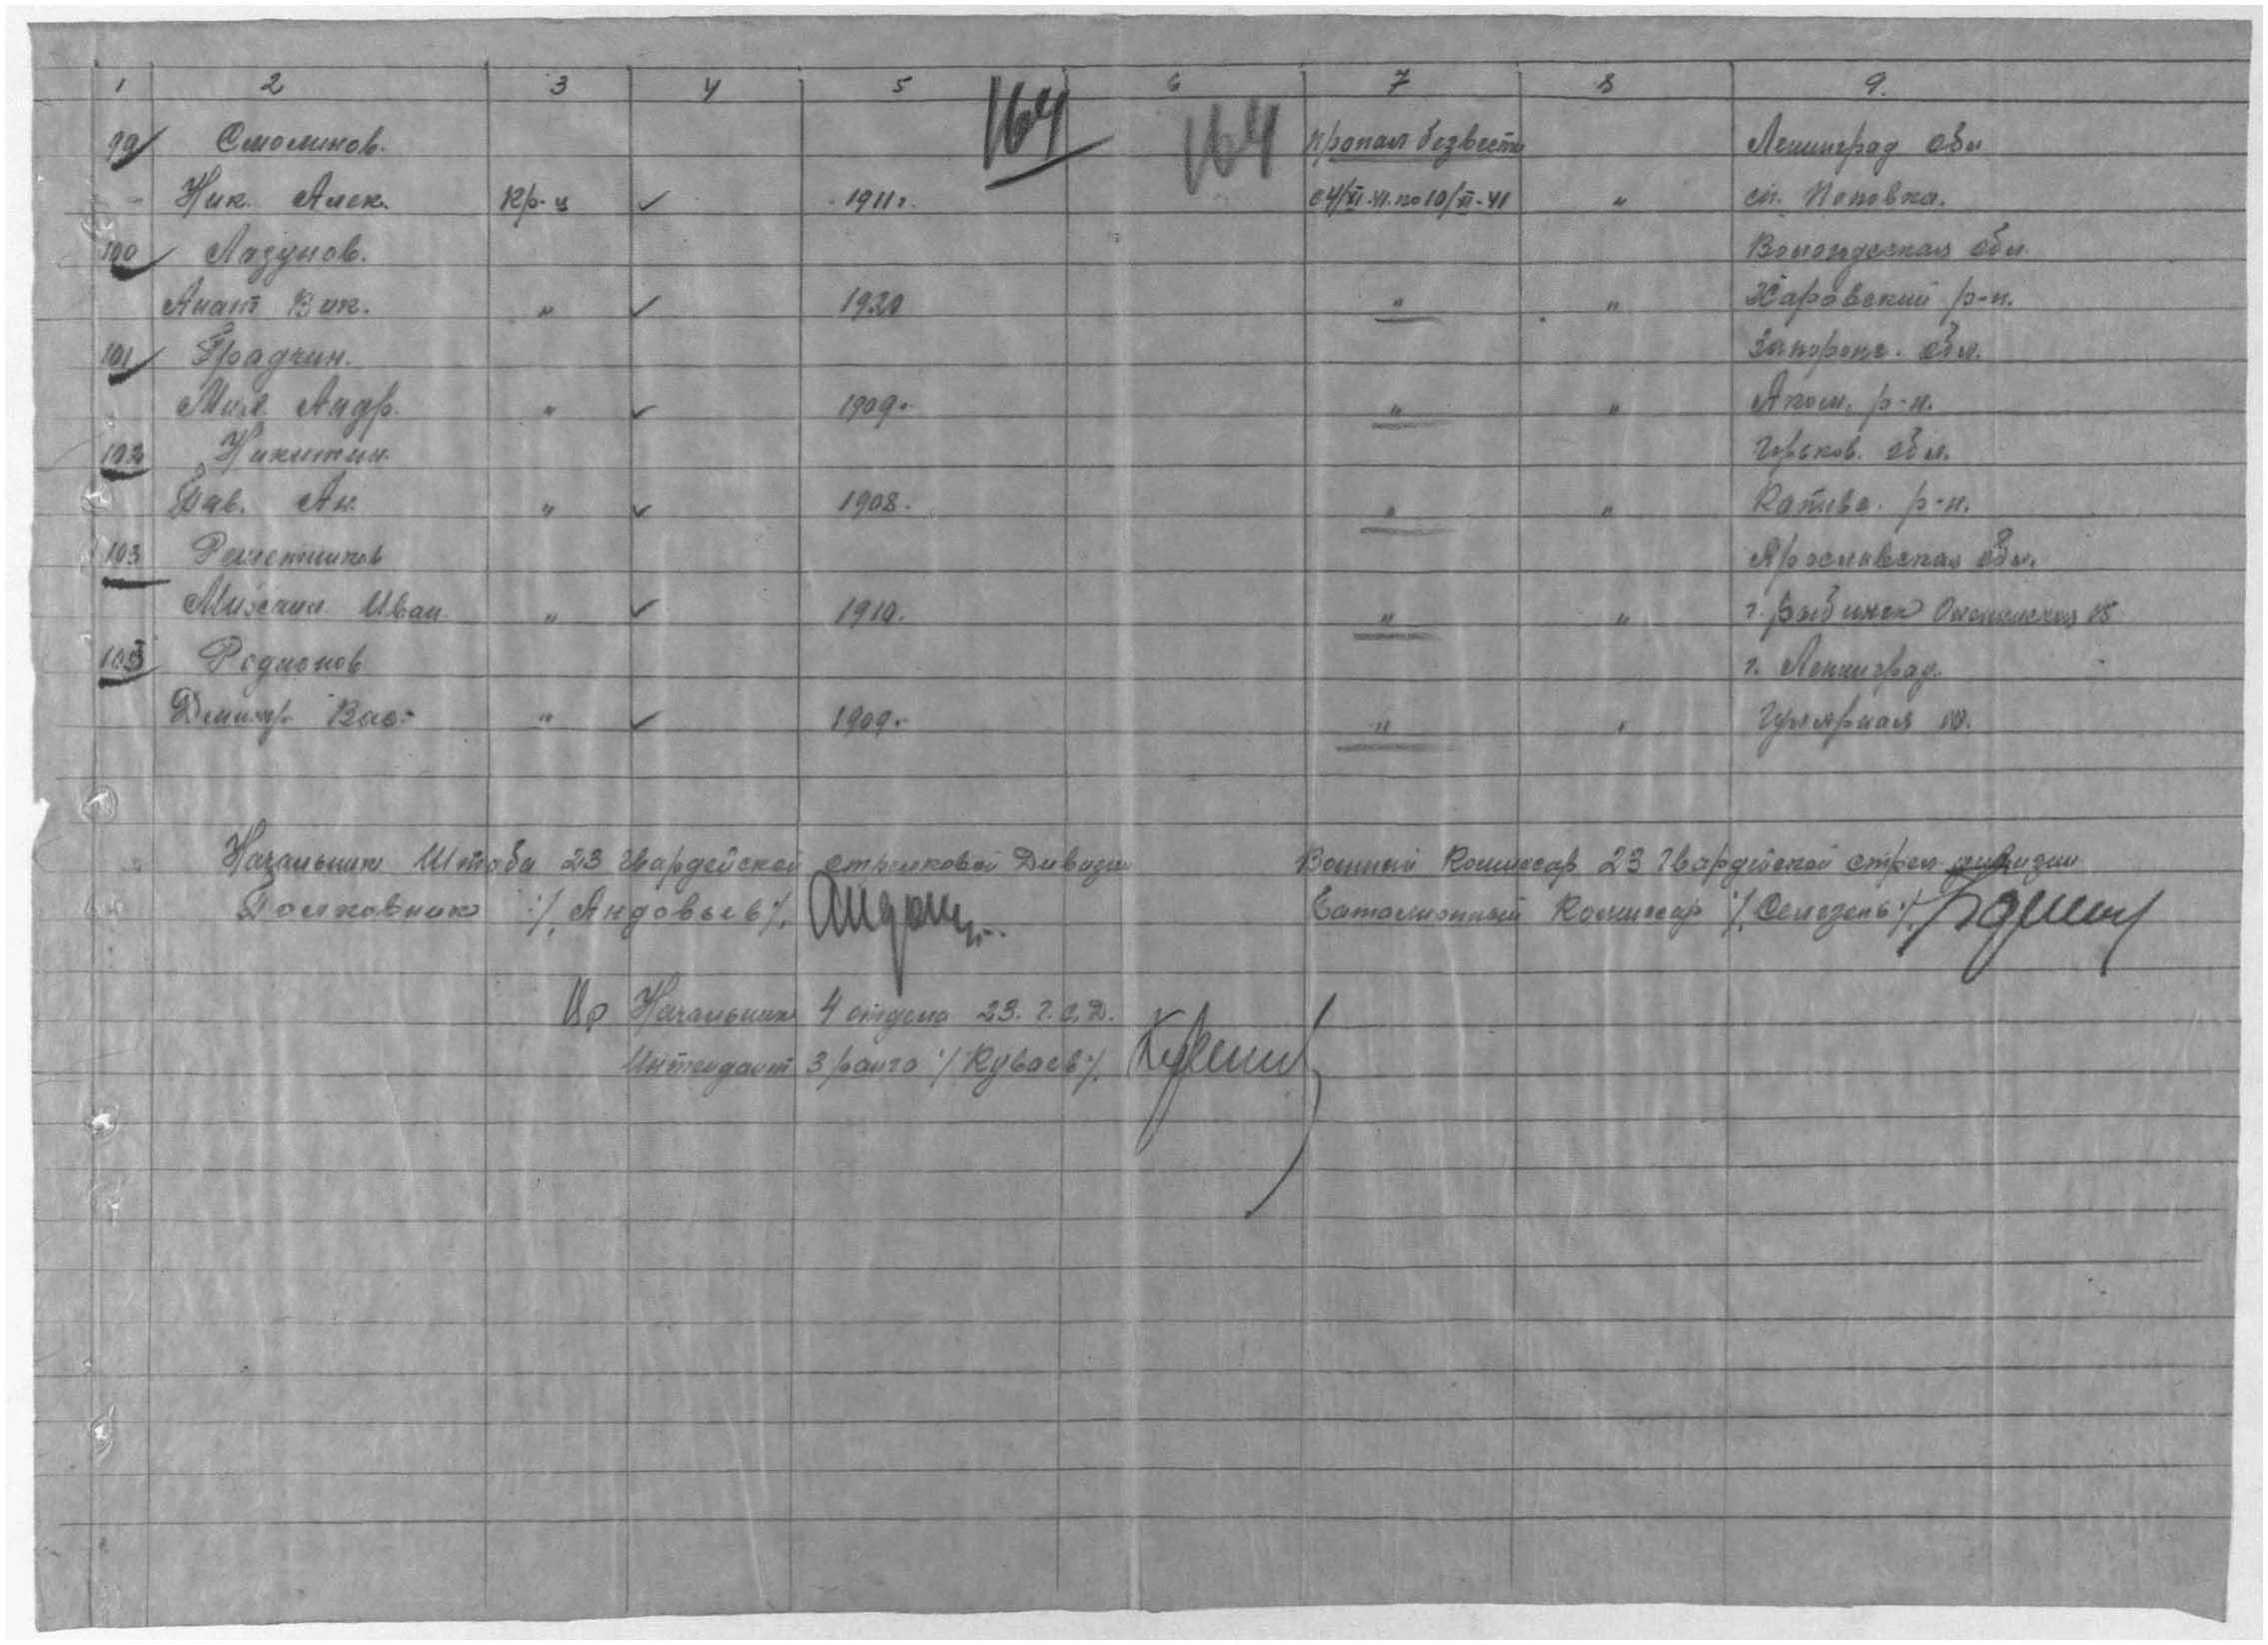 1 2 3 4 5 6 7 8 9.
164 164
99 Смолинов. Пропал безвести Ленинград обл
Ник. Алек. Кр-ц ✓ 1911г. с 4/XI-41 по 10/XI-41 " ст. Поповка.
100 Лазунов. Вологодская обл.
Анат Вик. " ✓ 1920 " " Харовский р-н.
101 Градчин. Запорож. обл.
Мих. Андр. " ✓ 1909. " " Аким. р-н.
102 Никитин. Горьков. обл.
Пав. Ан. " ✓ 1908. " " р-н.
103 Решетников Ярославская обл.
Михаил Иван " ✓ 1910. " " г. Рыбинск 18
Родионов г. Ленинград.
Дмитр Вас. " ✓ 1909. " " 10.
Начальник Штаба 23 Гвардейской стрелковой Дивизии Военный Комиссар 23 Гвардейской стрел дивизии
Полковник /Андовьев/. Батальонный Комиссар /Селезень/
Вр Начальник 4 отдела 23. Г.С.Д.
Интендант 3 ранга /Куваев/.